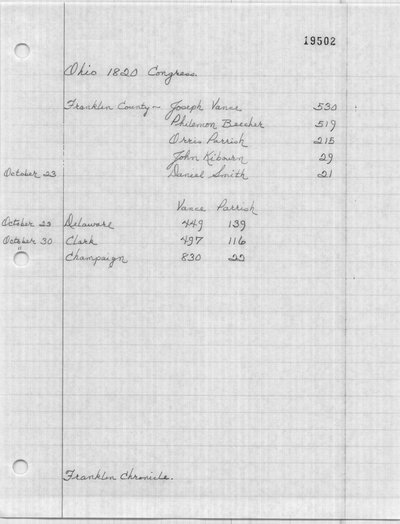 19502
Ohio 1820 Congress.
Franklin County ~ Joseph Vance 530
Philemon Beecher 519
Orris Parrish 215
John Kibourn 29
October 23 Daniel Smith 21
Vance Parrish
October 23 Delaware 449 139
October 30 Clark 497 116
" Champaign 830 22
Franklin Chronicle.